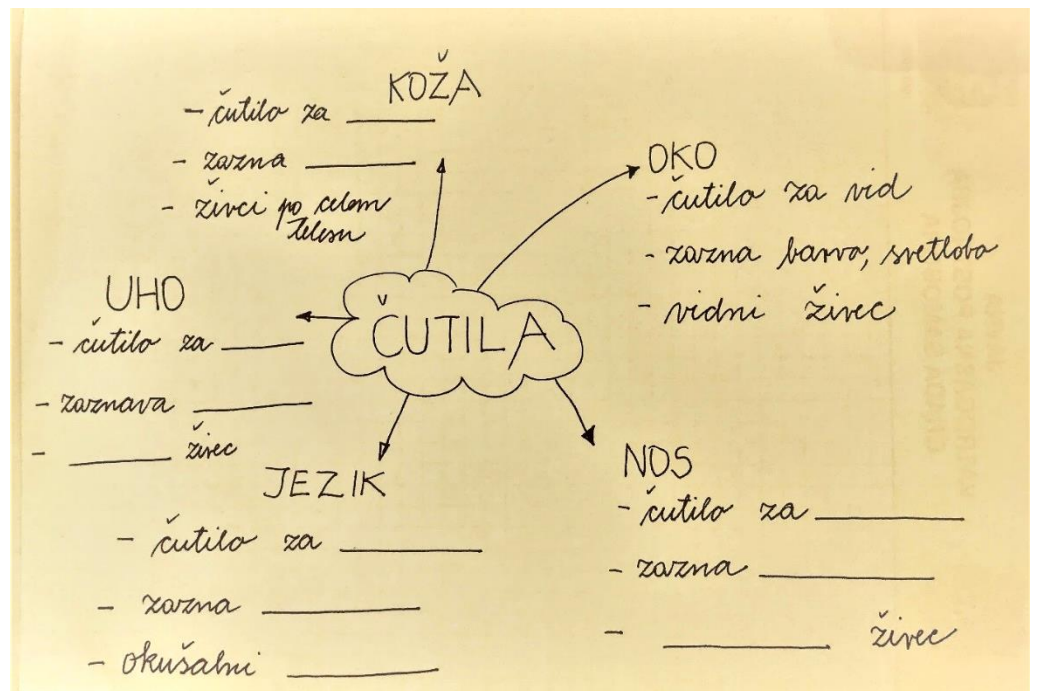 KOŽA
- čutilo za ______
- zazna ______
- živci po celem
telesu
OKO
- čutilo za vid
- zazna barvo, svetlobo
- vidni živec
UHO
- čutilo za ______
- zaznava ______
- ______ živec
ČUTILA
JEZIK
- čutilo za ______
- zazna ______
- okušalni ______
NOS
- čutilo za ______
- zazna ______
- ______ živec